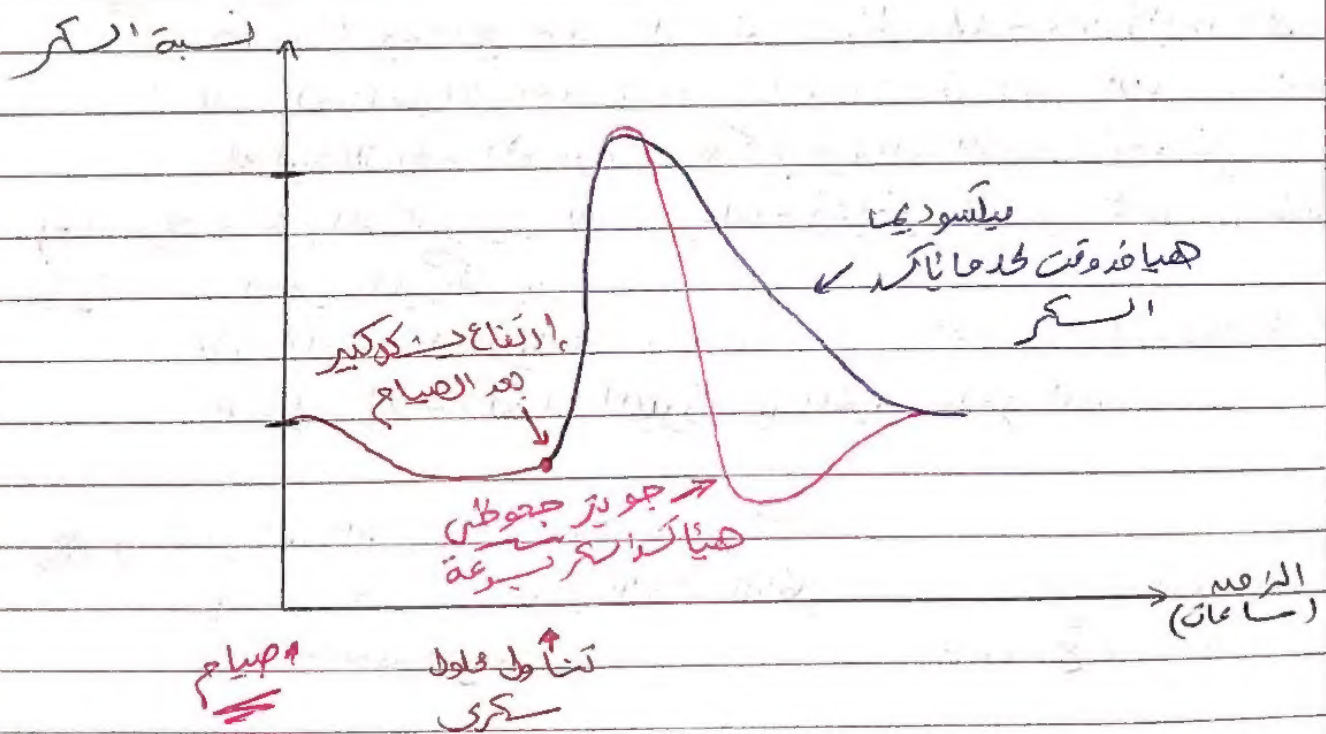 نسبة السكر
ميكسوديما
هياخد وقت لحد ما ياكد
السكر
ارتفاع بشكل كبير
بعد الصيام
جويتر جحوظى
هيأكسد السكر بسرعة
الزمن
(ساعات)
صيام
تناول محلول
سكرى